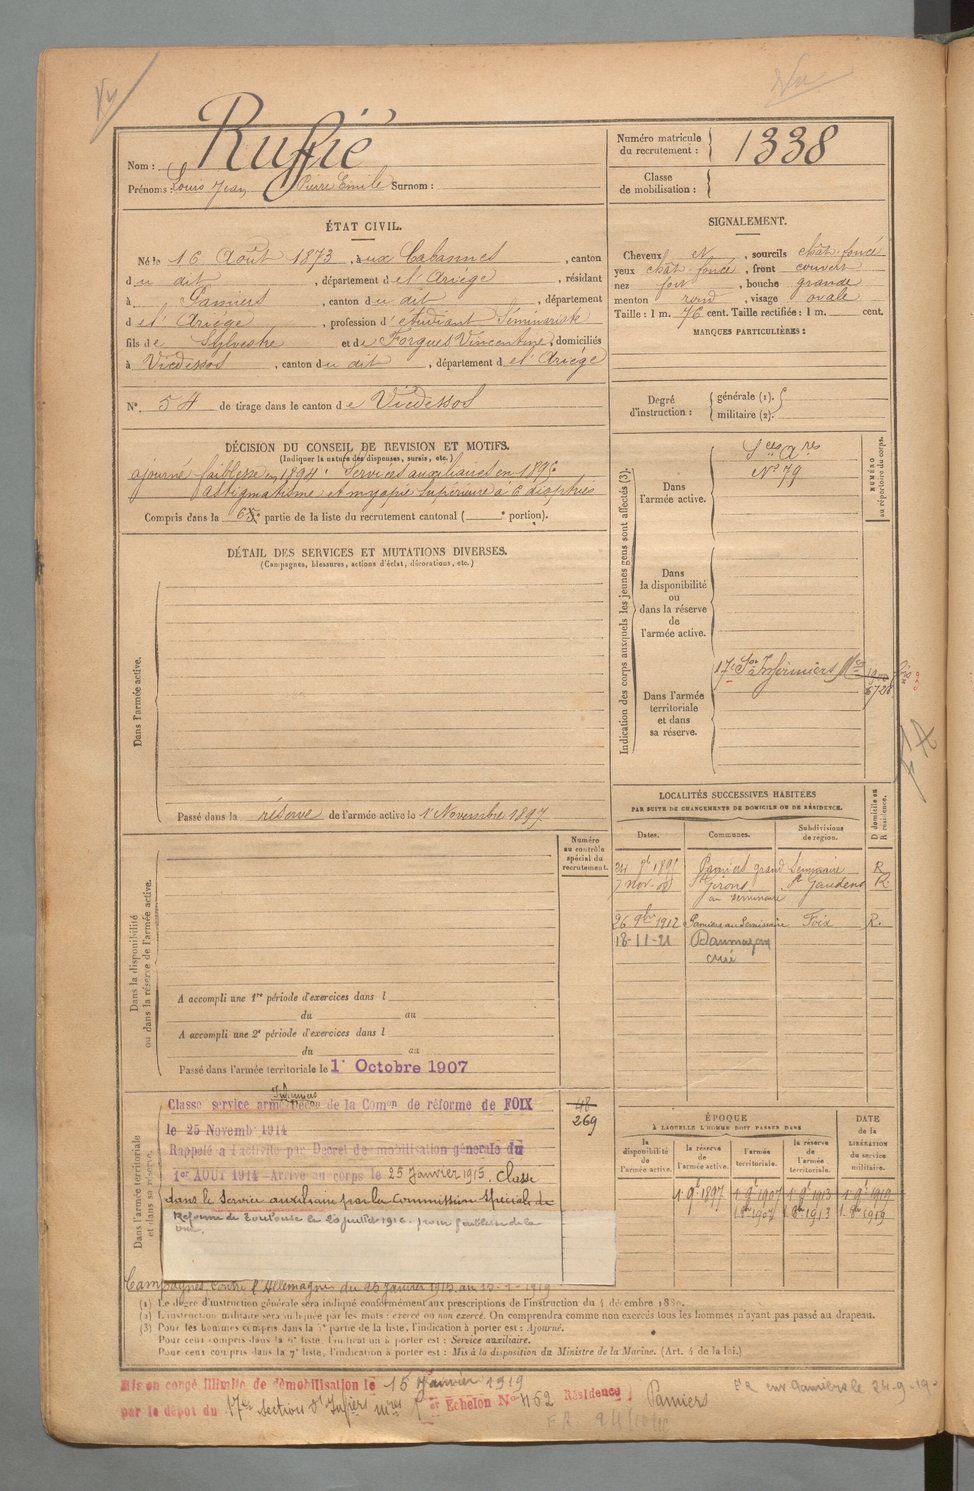 Vu
Vu
Nom : Ruffié
Prénoms : Louis Jean Pierre Emile Surnom :
Numéro matricule du recrutement : 1338
Classe de mobilisation :
ÉTAT CIVIL.
Né le 16 Août 1873, à aux Cabannes, canton
du dit, département de l'Ariège, résidant
à Pamiers, canton du dit, département
de l'Ariège, profession d'étudiant Séminariste
fils de Sylvestre et de Forgues Vincentine, domiciliés
à Vicdessos, canton du dit, département de l'Ariège
N° 54 de tirage dans le canton de Vicdessos
SIGNALEMENT.
Cheveux et, sourcils chât. foncé
yeux chât. foncé, front couvert
nez fort, bouche grande
menton rond, visage ovale
Taille : 1 m. 76 cent. Taille rectifiée : 1 m. cent.
MARQUES PARTICULIÈRES :
Degré d'instruction : générale (1).
militaire (2).
DÉCISION DU CONSEIL DE REVISION ET MOTIFS.
(Indiquer la nature des dispenses, sursis, etc.)
ajourné faiblesse en 1894. Services auxiliaires en 1896
astigmatisme et myopie supérieure à 6 dioptries
Compris dans la 6e partie de la liste du recrutement cantonal ( e portion).
DÉTAIL DES SERVICES ET MUTATIONS DIVERSES.
(Campagnes, blessures, actions d'éclat, décorations, etc.)
Dans l'armée active.
Passé dans la réserve de l'armée active le 1 Novembre 1897
Indication des corps auxquels les jeunes gens sont affectés (3).
NUMÉRO au répertoire du corps.
Dans l'armée active.
Sces Ares
N° 79
Dans la disponibilité ou dans la réserve de l'armée active.
Dans l'armée territoriale et dans sa réserve.
17e Son Infirmiers Mres
LOCALITÉS SUCCESSIVES HABITÉES
PAR SUITE DE CHANGEMENTS DE DOMICILE OU DE RÉSIDENCE.
Dates. Communes. Subdivisions de région. D domicile ou R résidence.
Pamiers grand Seminaire R
7 nov. St Girons St Gaudens R
au seminaire
26 9bre 1912 Pamiers au Seminaire Foix R.
18-11-21 Daumazan
curé
Dans la disponibilité ou dans la réserve de l'armée active.
Numéro au contrôle spécial du recrutement.
A accompli une 1re période d'exercices dans l
du au
A accompli une 2e période d'exercices dans l
du au
Passé dans l'armée territoriale le 1er Octobre 1907
Dans l'armée territoriale et dans sa réserve.
48
269
Classé service armé Décon de la Comon de réforme de FOIX
le 25 Novemb 1914
Rappelé à l'activité par Décret de mobilisation générale du
1er AOUT 1914 - Arrivé au corps le 25 Janvier 1915. Classé
dans le Service auxiliaire par la Commission Spéciale de
Réforme de Toulouse le 20 juillet 1916. pour faiblesse de la
vue.
Campagnes contre l'Allemagne du 25 Janvier 1915 au 15-1-1919
ÉPOQUE
À LAQUELLE L'HOMME DOIT PASSER DANS
la disponibilité de l'armée active. la réserve de l'armée active. l'armée territoriale. la réserve de l'armée territoriale. DATE de la LIBÉRATION du service militaire.
1 9e 1897 1 9e 1907 1 9e 1913 1 9e 1919
1 8bre 1907 1 8bre 1913 1 8bre 1919
(1) Le degré d'instruction générale sera indiqué conformément aux prescriptions de l'instruction du 4 décembre 1889.
(2) L'instruction militaire sera indiquée par les mots : exercé ou non exercé. On comprendra comme non exercés tous les hommes n'ayant pas passé au drapeau.
(3) Pour les hommes compris dans la 5e partie de la liste, l'indication à porter est : Ajourné.
Pour ceux compris dans la 6e liste, l'indication à porter est : Service auxiliaire.
Pour ceux compris dans la 7e liste, l'indication à porter est : Mis à la disposition du Ministre de la Marine. (Art. 4 de la loi.)
Mis en congé illimité de démobilisation le 15 Janvier 1919
par le dépôt du 17e Section d'Infiers mres Echelon N° 452 Résidence : Pamiers